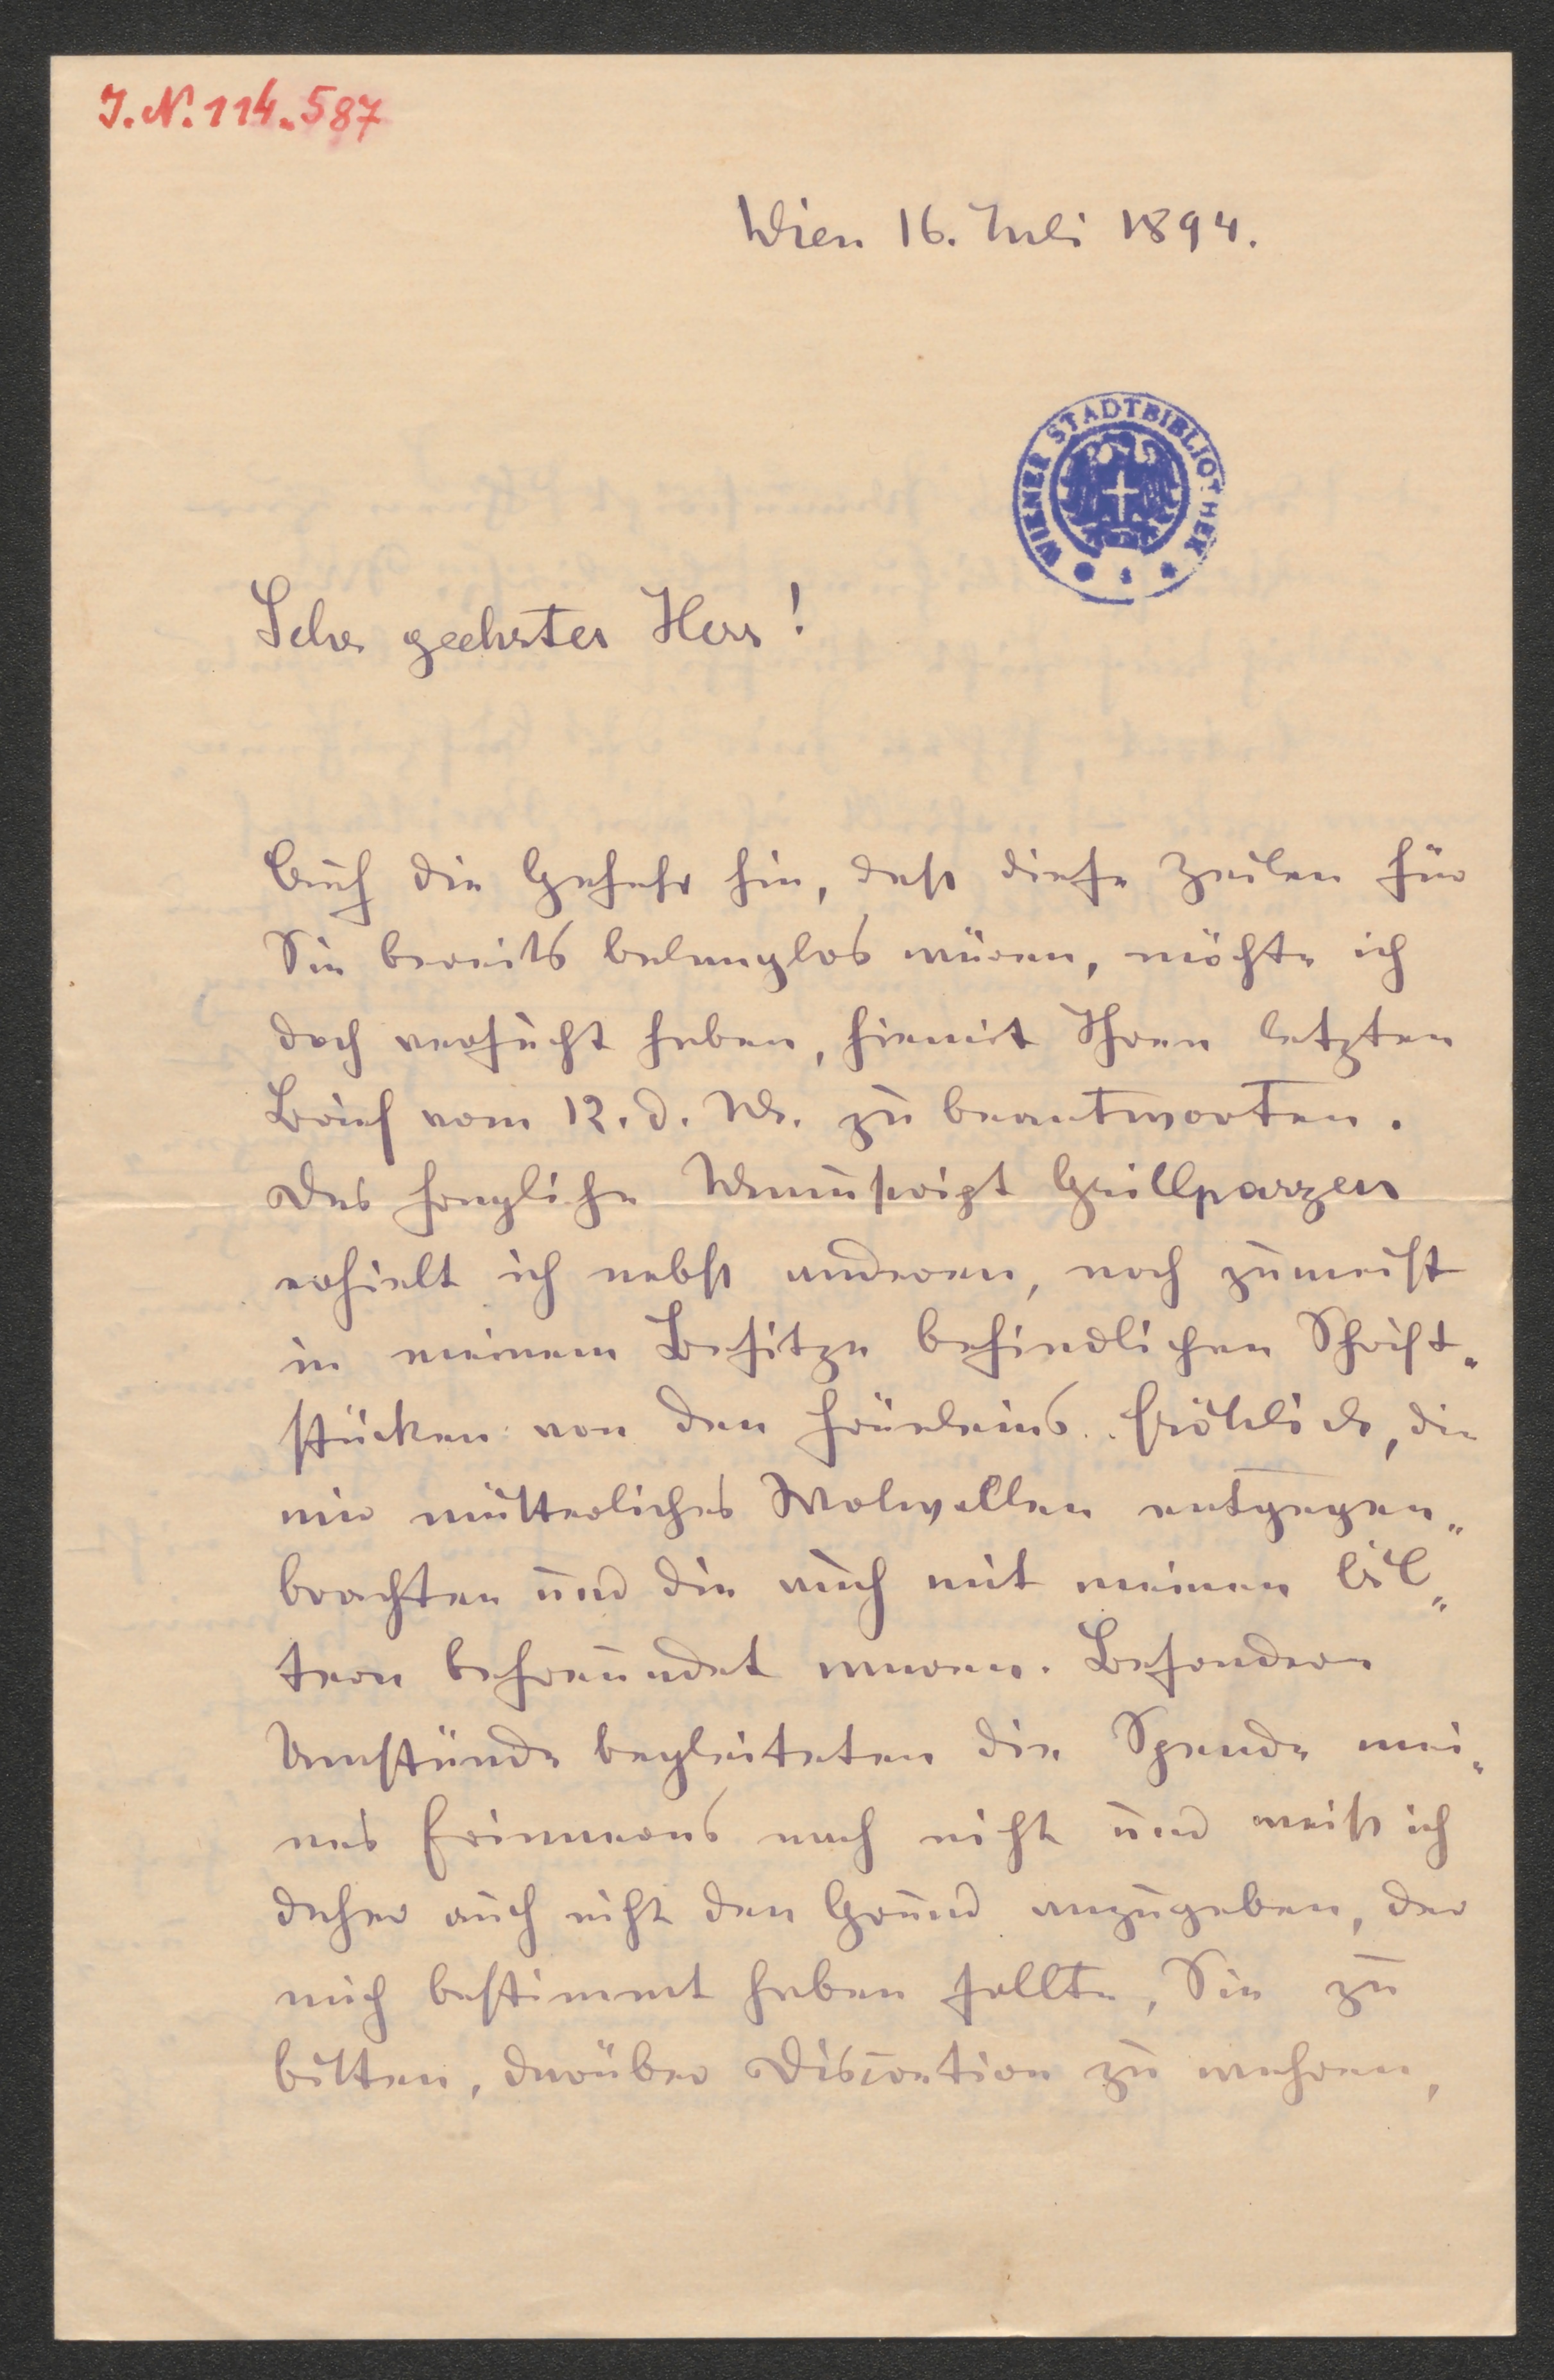 J. N. 114.587
Wien 16. Juli 1894.
WIENER STADTBIBLIOTHEK
Sehr geehrter Herr!
Auf die Gefahr hin, daß diese Zeilen für
Sie bereits belanglos wären, möchte ich
doch versucht haben, hiemit Ihren letzten
Brief vom 12. d. M. zu beantworten.
Das fragliche Manuskript Grillparzers
erhielt ich nebst anderen, noch zumeist
in meinem Besitze befindlichen Schrift„
stücken von den Fräuleins Fröhlich, die
mir mütterliches Wolwollen entgegen„
brachten und die auch mit meinen Äl„
tern befreundet waren. Besondere
Umstände begleiteten die Spende mei„
nes Erinnerns nach nicht und weiß ich
daher auch nicht den Grund anzugeben, der
mich bestimmt haben sollte, Sie zu
bitten, darüber Discretion zu wahren,